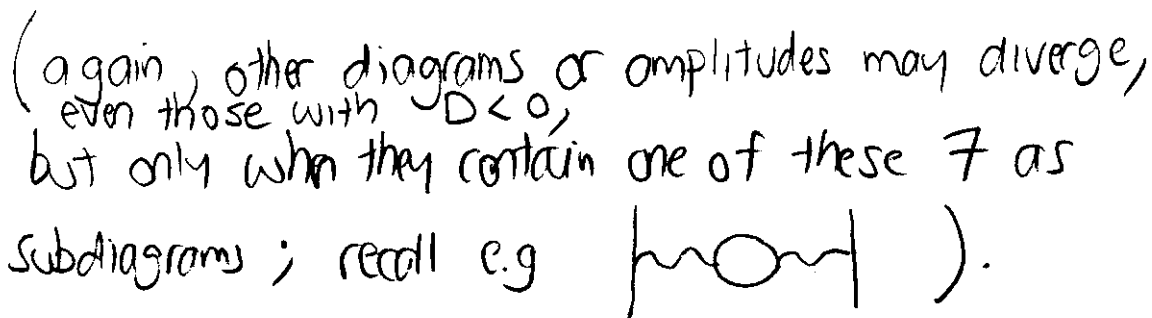 (again, other diagrams or amplitudes may diverge,
even those with D<0,
but only whn they contain one of these 7 as
subdiagrams ; recall e.g ).